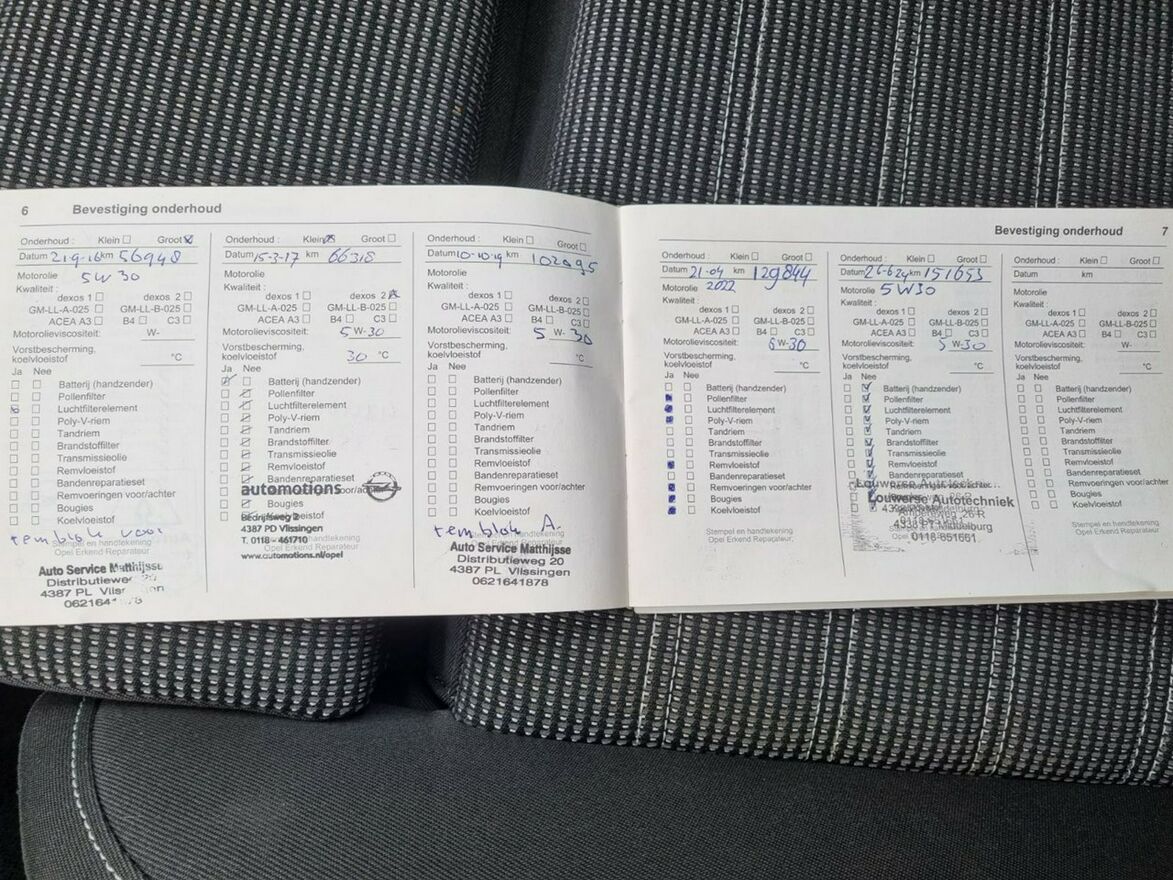 6 Bevestiging onderhoud
Onderhoud : Klein Groot
Datum 21-9-16 km 56948
Motorolie 5W30
Kwaliteit :
dexos 1 dexos 2
GM-LL-A-025 GM-LL-B-025
ACEA A3 B4 C3
Motorolieviscositeit: W-
Vorstbescherming,
koelvloeistof °C
Ja Nee
Batterij (handzender)
Pollenfilter
Luchtfilterelement
Poly-V-riem
Tandriem
Brandstoffilter
Transmissieolie
Remvloeistof
Bandenreparatieset
Remvoeringen voor/achter
Bougies
Koelvloeistof
remblok voor
Stempel en handtekening
Opel Erkend Reparateur
Auto Service Matthijsse
Distributieweg 20
4387 PL Vlissingen
062164
Onderhoud : Klein Groot
Datum 15-3-17 km 66318
Motorolie
Kwaliteit :
dexos 1 dexos 2
GM-LL-A-025 GM-LL-B-025
ACEA A3 B4 C3
Motorolieviscositeit: 5 W-30
Vorstbescherming,
koelvloeistof 30 °C
Ja Nee
Batterij (handzender)
Pollenfilter
Luchtfilterelement
Poly-V-riem
Tandriem
Brandstoffilter
Transmissieolie
Remvloeistof
Bandenreparatieset
automotions voor/achter
Bougies
Bedrijfsweg 2
4387 PD Vlissingen
T. 0118 - 461710
Opel Erkend Reparateur
www.automotions.nl/opel
Onderhoud : Klein Groot
Datum 10-10-19 km 102095
Motorolie
Kwaliteit :
dexos 1 dexos 2
GM-LL-A-025 GM-LL-B-025
ACEA A3 B4 C3
Motorolieviscositeit: 5 W-30
Vorstbescherming,
koelvloeistof °C
Ja Nee
Batterij (handzender)
Pollenfilter
Luchtfilterelement
Poly-V-riem
Tandriem
Brandstoffilter
Transmissieolie
Remvloeistof
Bandenreparatieset
Remvoeringen voor/achter
Bougies
Koelvloeistof
remblok A.
Stempel en handtekening
Opel Erkend Reparateur
Auto Service Matthijsse
Distributieweg 20
4387 PL Vlissingen
0621641878
Bevestiging onderhoud 7
Onderhoud : Klein Groot
Datum 21-04 km 129844
Motorolie 2022
Kwaliteit :
dexos 1 dexos 2
GM-LL-A-025 GM-LL-B-025
ACEA A3 B4 C3
Motorolieviscositeit: W-30
Vorstbescherming,
koelvloeistof °C
Ja Nee
Batterij (handzender)
Pollenfilter
Luchtfilterelement
Poly-V-riem
Tandriem
Brandstoffilter
Transmissieolie
Remvloeistof
Bandenreparatieset
Remvoeringen voor/achter
Bougies
Koelvloeistof
Stempel en handtekening
Opel Erkend Reparateur
Onderhoud : Klein Groot
Datum 26-6-24 km 151653
Motorolie 5W30
Kwaliteit :
dexos 1 dexos 2
GM-LL-A-025 GM-LL-B-025
ACEA A3 B4 C3
Motorolieviscositeit: 5 W-30
Vorstbescherming,
koelvloeistof °C
Ja Nee
Batterij (handzender)
Pollenfilter
Luchtfilterelement
Poly-V-riem
Tandriem
Brandstoffilter
Transmissieolie
Remvloeistof
Bandenreparatieset
Louwerse Autotechniek
Middelburg
0118-651661
Onderhoud : Klein Groot
Datum km
Motorolie
Kwaliteit :
dexos 1 dexos 2
GM-LL-A-025 GM-LL-B-025
ACEA A3 B4 C3
Motorolieviscositeit: W-
Vorstbescherming,
koelvloeistof °C
Ja Nee
Batterij (handzender)
Pollenfilter
Luchtfilterelement
Poly-V-riem
Tandriem
Brandstoffilter
Transmissieolie
Remvloeistof
Bandenreparatieset
Remvoeringen voor/achter
Bougies
Koelvloeistof
Stempel en handtekening
Opel Erkend Reparateur